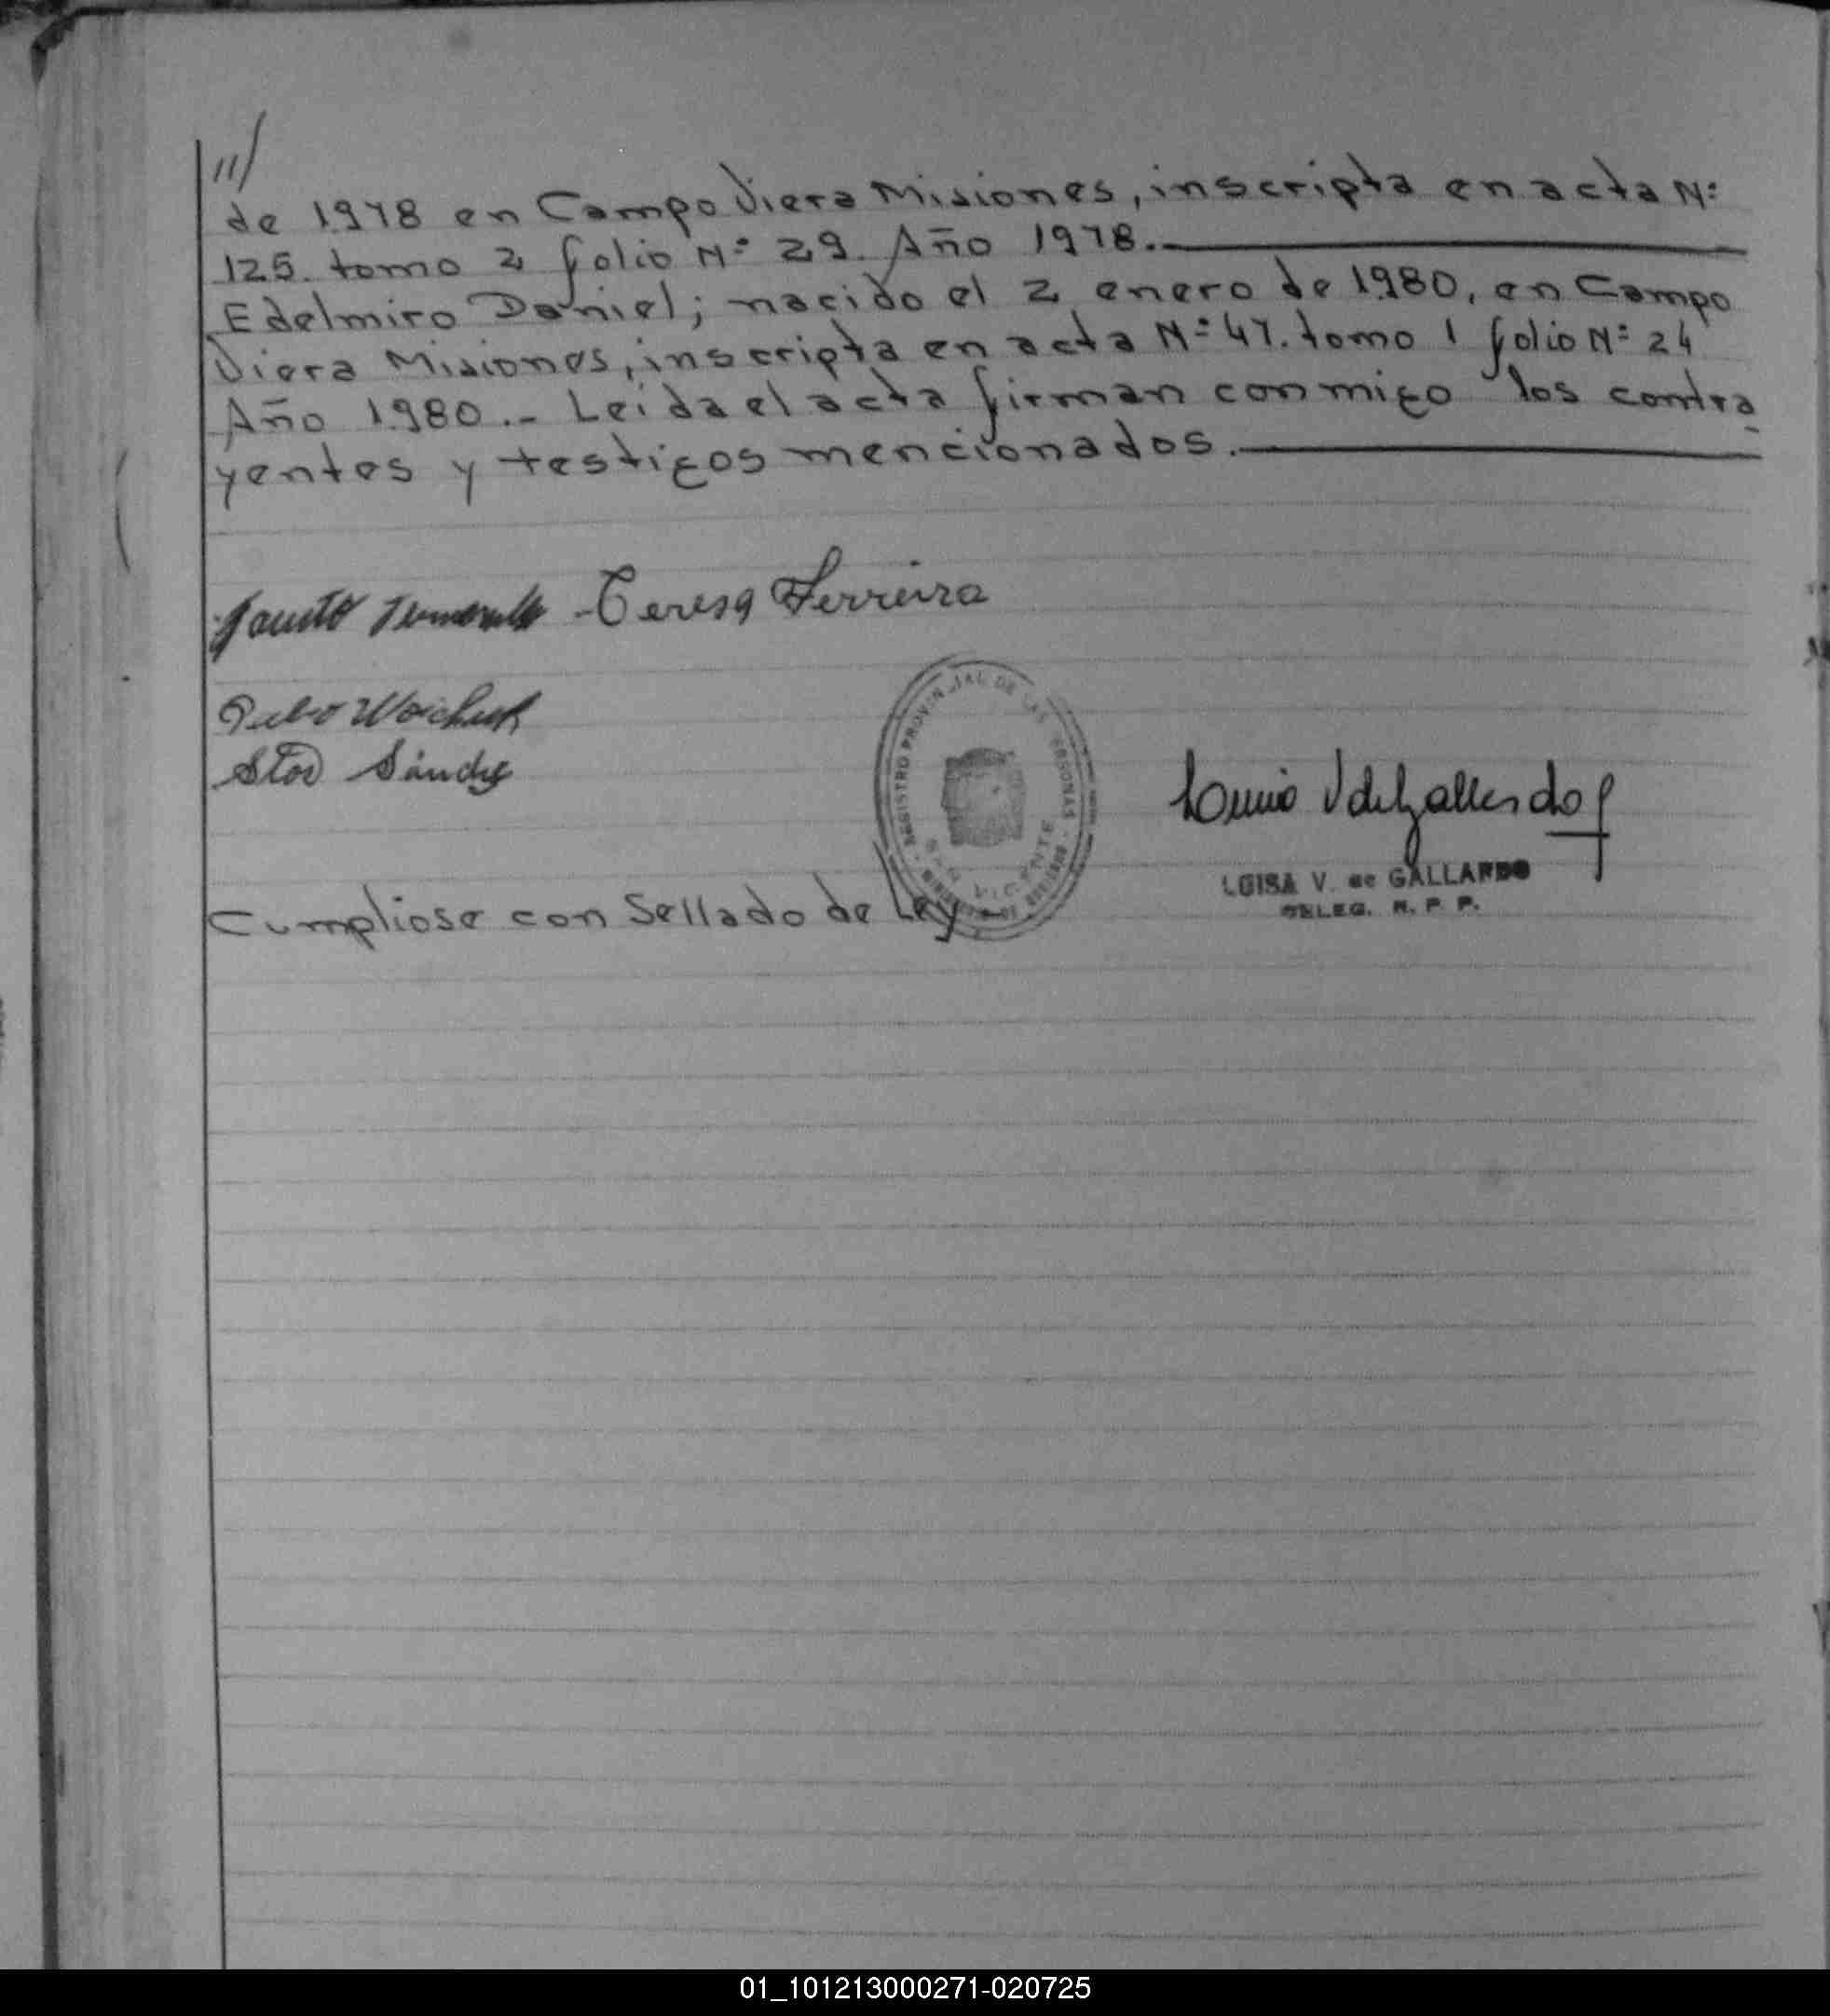 ///
de 1978 en Campo Viera Misiones, inscripta en acta Nº
125. tomo 2 folio Nº 29. Año 1978.-
Edelmiro Daniel; nacido el 2 enero de 1980, en Campo
Viera Misiones, inscripta en acta Nº 47. tomo 1 folio Nº 24
Año 1980.- Leida el acta firman conmigo los contra
yentes y testigos mencionados.-
Fausto
Teresa Ferreira
Sánchez
REGISTRO PROVINCIAL DE LAS PERSONAS
SAN VICENTE
LUISA V. de GALLARDO
DELEG. R. P. P.
Cumpliose con Sellado de Ley
01_101213000271-020725